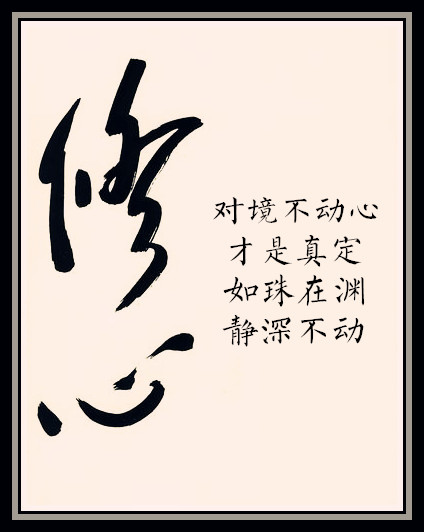 修心
对境不动心
才是真定
如珠在渊
静深不动